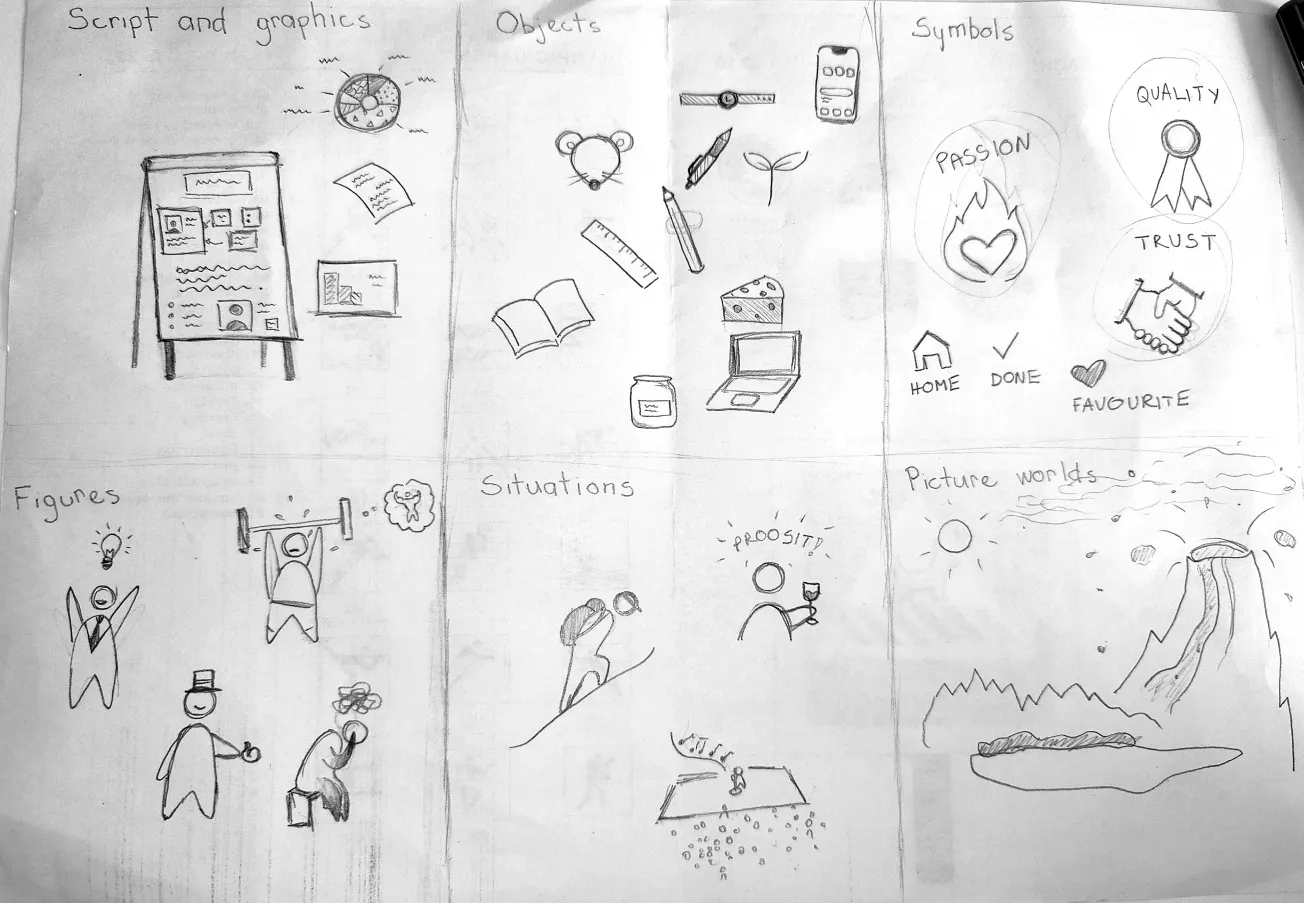 Script and graphics
Objects
Symbols
PASSION
QUALITY
TRUST
HOME
DONE
FAVOURITE
Figures
Situations
PROOSIT!
Picture worlds